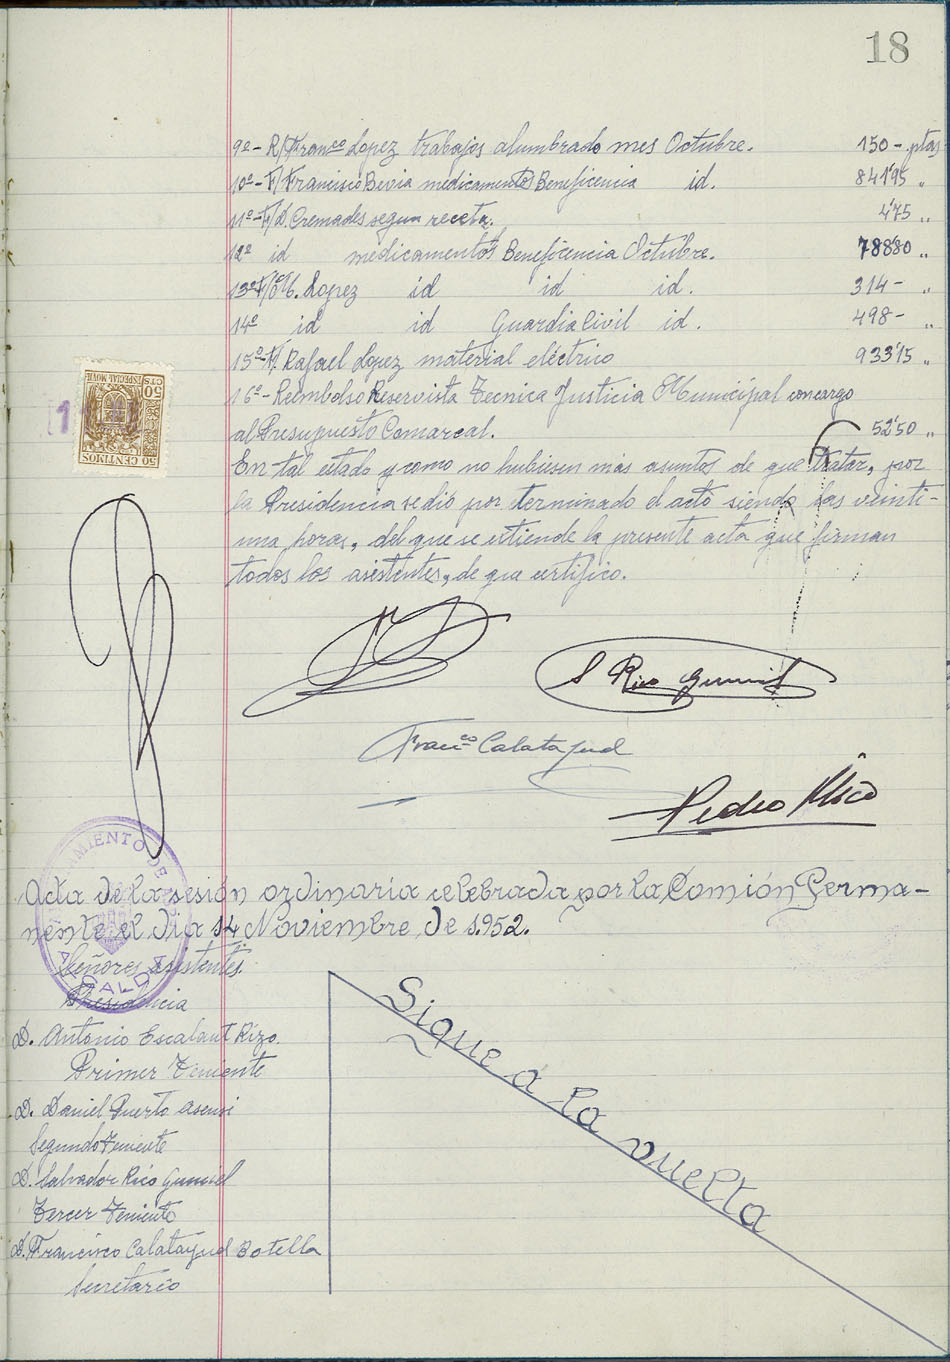 18
9º- R/ Franco Lopez trabajos alumbrado mes Octubre. 150 - ptas
10º- F/ Francisco Bevia medicamentos Beneficencia id. 841'95 "
11º- F/ D. Cremades segun receta. 4'75 "
12º id medicamentos Beneficencia Octubre. 788'80 "
13º F/ Lopez id id id. 314 - "
14º id id Guardia Civil id. 498 - "
15º- F/. Rafael Lopez material eléctrico 933'15 "
16º- Reembolso Reservista Tecnica Justicia Municipal con cargo
al Presupuesto Comarcal. 52'50 "
En tal estado y como no hubiesen más asuntos de que tratar, por
la Presidencia se dió por terminado el acto siendo las veinti-
una horas, del que se extiende la presente acta que firman
todos los asistentes, de que certifico.
50 CENTIMOS
ESPECIAL MOVIL
50 CTS
S Rico Gumiel
Franco Calatayud
Pedro Rico
Acta de la sesión ordinaria celebrada por la Comión Perma-
nente el dia 14 Noviembre de 1.952.
Señores asistentes.
Presidencia
D. Antonio Escalant Rizo.
Primer Teniente
D. Daniel Puerto Asensi
Segundo Teniente
D. Salvador Rico Gumiel
Tercer Teniente
D. Francisco Calatayud Botella
Secretario
Sigue a la vuelta
AMIENTO DE
ALCALD